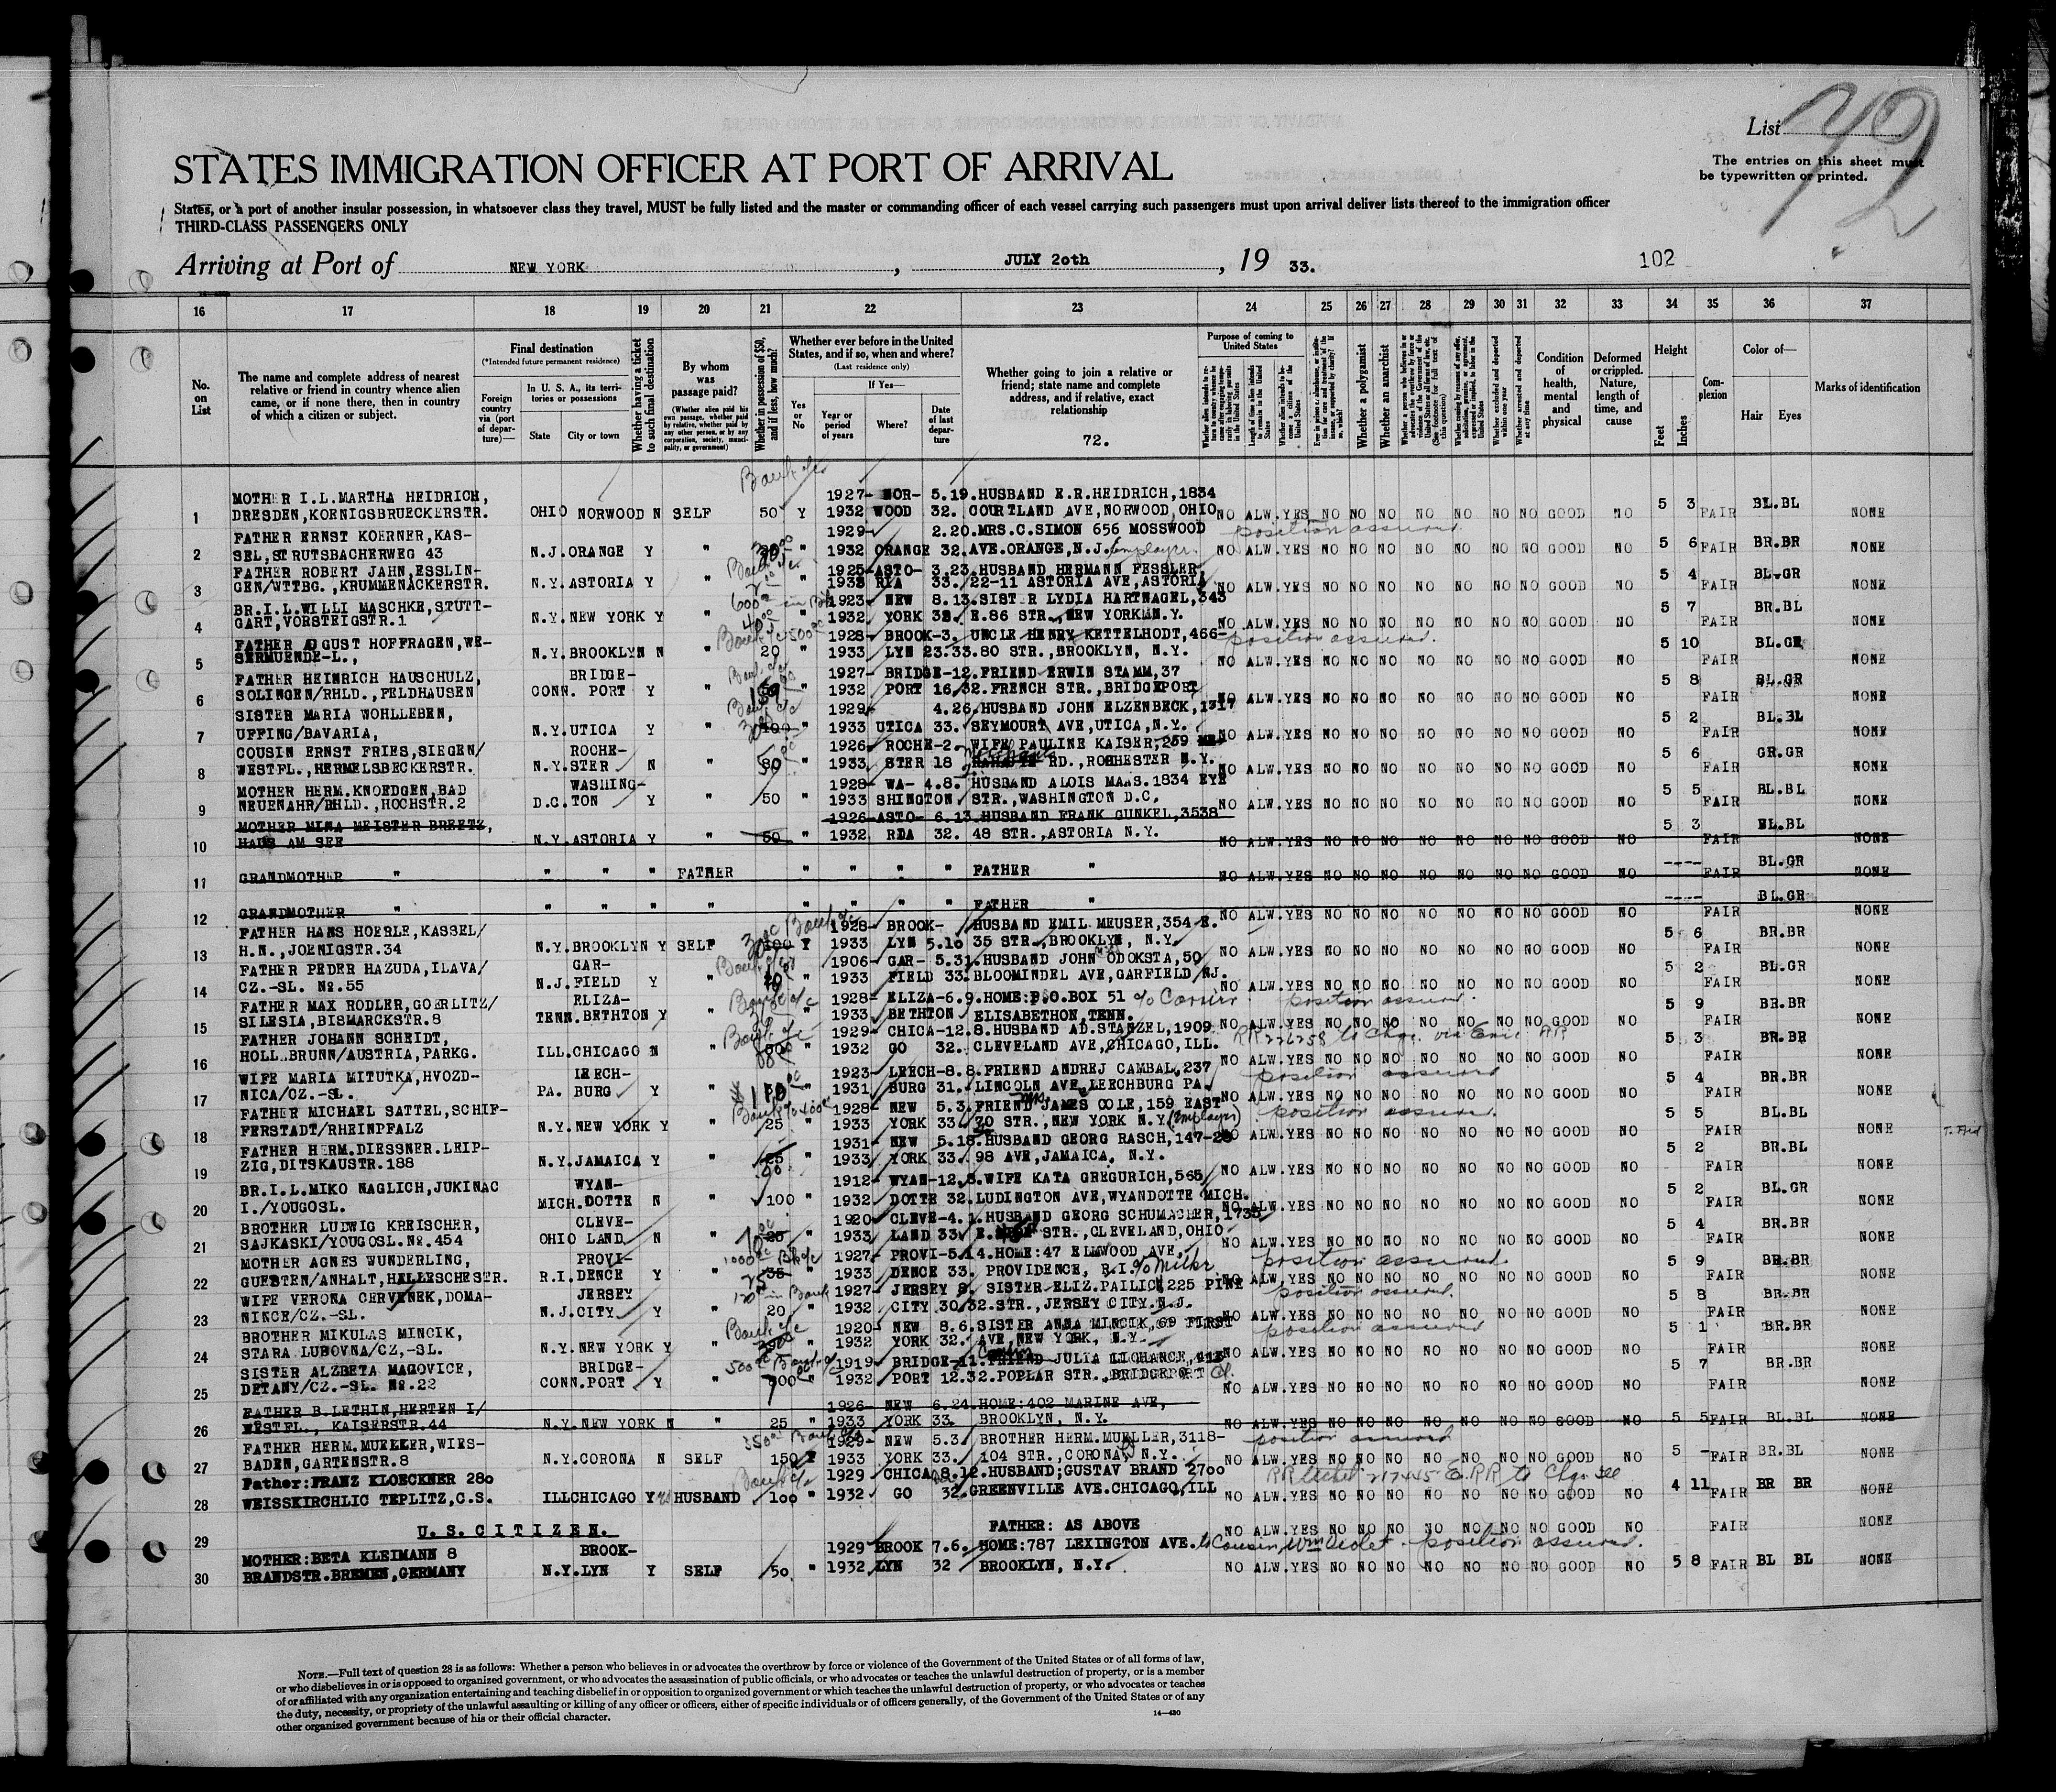 List 72
The entries on this sheet must
be typewritten or printed.
STATES IMMIGRATION OFFICER AT PORT OF ARRIVAL
States, or a port of another insular possession, in whatsoever class they travel, MUST be fully listed and the master or commanding officer of each vessel carrying such passengers must upon arrival deliver lists thereof to the immigration officer
THIRD-CLASS PASSENGERS ONLY
Arriving at Port of NEW YORK, JULY 20th, 19 33.
102
16 17 18 19 20 21 22 23 24 25 26 27 28 29 30 31 32 33 34 35 36 37
No. on List
The name and complete address of nearest relative or friend in country whence alien came, or if none there, then in country of which a citizen or subject.
Final destination
(*Intended future permanent residence)
Foreign country via (port of departure)—
In U. S. A., its territories or possessions
State City or town
Whether having a ticket to such final destination
By whom was passage paid?
(Whether alien paid his own passage, whether paid by relative, whether paid by any other person, or by any corporation, society, municipality, or government)
Whether in possession of $50, and if less, how much?
Whether ever before in the United States, and if so, when and where?
(Last residence only)
Yes or No
If Yes—
Year or period of years
Where?
Date of last departure
Whether going to join a relative or friend; state name and complete address, and if relative, exact relationship
72.
Purpose of coming to United States
Whether a polygamist
Whether an anarchist
Condition of health, mental and physical
Deformed or crippled. Nature, length of time, and cause
Height
Feet Inches
Complexion
Color of—
Hair Eyes
Marks of identification
1 MOTHER I.L.MARTHA HEIDRICH, 1927- NOR- 5.19. HUSBAND E.R.HEIDRICH,1834
DRESDEN,KOENIGSBRUECKERSTR. OHIO NORWOOD N SELF 50 Y 1932 WOOD 32. COURTLAND AVE,NORWOOD,OHIO NO ALW.YES NO NO NO NO NO NO NO GOOD NO 5 3 FAIR BL.BL NONE
2 FATHER ERNST KOERNER,KAS- 1929- 2.20. MRS.C.SIMON 656 MOSSWOOD position assured
SEL,STRUTSBACHERWEG 43 N.J.ORANGE Y " " 1932 ORANGE 32. AVE.ORANGE,N.J. Employer. NO ALW.YES NO NO NO NO NO NO NO GOOD NO 5 6 FAIR BR.BR NONE
3 FATHER ROBERT JAHN,ESSLIN- 1925- ASTO- 3.23. HUSBAND HERMANN FESSLER,
GEN/WTTBG.,KRUMMENACKERSTR. N.Y.ASTORIA Y " " 1933 RIA 33. 22-11 ASTORIA AVE,ASTORIA NO ALW.YES NO NO NO NO NO NO NO GOOD NO 5 4 FAIR BL-GR NONE
4 BR.I.L.WILLI MASCHKE,STUTT- 1923- NEW 8.13. SISTER LYDIA HARTNAGEL,343
GART,VORSTEIGSTR.1 N.Y.NEW YORK Y " " 1932 YORK 32. E.86 STR.,NEW YORK N.Y. NO ALW.YES NO NO NO NO NO NO NO GOOD NO 5 7 FAIR BR.BL NONE
5 FATHER AUGUST HOFFRAGEN,WE- 1928- BROOK-3. UNCLE HENRY KETTELHODT,466- position assured.
SERMUENDE-L., N.Y.BROOKLYN N " 20 " 1933 LYN 23.33. 80 STR.,BROOKLYN, N.Y. NO ALW.YES NO NO NO NO NO NO NO GOOD NO 5 10 FAIR BL.GR NONE
6 FATHER HEINRICH HAUSCHULZ, BRIDGE- 1927- BRIDGE-12. FRIEND ERWIN STAMM,37
SOLINGEN/RHLD.,FELDHAUSEN CONN. PORT Y " " 1932 PORT 16.32. FRENCH STR.,BRIDGEPORT NO ALW.YES NO NO NO NO NO NO NO GOOD NO 5 8 FAIR BL.GR NONE
7 SISTER MARIA WOHLLEBEN, 1929- 4.26. HUSBAND JOHN ELZENBECK,1317
UFFING/BAVARIA, N.Y.UTICA Y " 100 " 1933 UTICA 33. SEYMOUR AVE,UTICA,N.Y. NO ALW.YES NO NO NO NO NO NO NO GOOD NO 5 2 FAIR BL.BL NONE
8 COUSIN ERNST FRIES,SIEGEN/ ROCHE- 1926- ROCHE-2. WIFE PAULINE KAISER,239
WESTFL.,HERMELSBECKERSTR. N.Y.STER N " " 1933 STER 18 RD.,ROCHESTER N.Y. NO ALW.YES NO NO NO NO NO NO NO GOOD NO 5 6 FAIR GR.GR NONE
9 MOTHER HERM.KNOEDGEN,BAD WASHING- 1928- WA- 4.8. HUSBAND ALOIS MAAS.1834 EYE
NEUENAHR/RHLD.,HOCHSTR.2 D.C.TON Y " 50 " 1933 SHINGTON STR.,WASHINGTON D.C. NO ALW.YES NO NO NO NO NO NO NO GOOD NO 5 5 FAIR BL.BL NONE
10 MOTHER MINA MEISTER BREETZ, 1926-ASTO- 6.13. HUSBAND FRANK GUNKEL,3538
HAUS AM SEE N.Y.ASTORIA Y " 50 " 1932 RIA 32. 48 STR.,ASTORIA N.Y. NO ALW.YES NO NO NO NO NO NO NO GOOD NO 5 3 FAIR BL.BL NONE
11 GRANDMOTHER " " " " FATHER " " " " FATHER " NO ALW.YES NO NO NO NO NO NO NO GOOD NO ---- FAIR BL.GR NONE
12 GRANDMOTHER " " " " " " " " " FATHER " NO ALW.YES NO NO NO NO NO NO NO GOOD NO ---- FAIR BL.GR NONE
13 FATHER HANS HOERLE,KASSEL/ 1928- BROOK- HUSBAND EMIL MEUSER,354 E.
H.N.,JOENIGSTR.34 N.Y.BROOKLYN Y SELF 100 Y 1933 LYN 5.10 35 STR.,BROOKLYN, N.Y. NO ALW.YES NO NO NO NO NO NO NO GOOD NO 5 6 FAIR BR.BR NONE
14 FATHER PEDER HAZUDA,ILAVA/ GAR- 1906- GAR- 5.31. HUSBAND JOHN ODOKSTA,50
CZ.-SL. No.55 N.J.FIELD Y " " 1933 FIELD 33. BLOOMINDEL AVE,GARFIELD NJ. NO ALW.YES NO NO NO NO NO NO NO GOOD NO 5 2 FAIR BL.GR NONE
15 FATHER MAX RODLER,GOERLITZ/ ELIZA- 1928- ELIZA-6.9. HOME:P.O.BOX 51 position assured.
SILESIA,BISMARCKSTR.8 TENN.BETHTON Y " " 1933 BETHTON ELISABETHON,TENN. NO ALW.YES NO NO NO NO NO NO NO GOOD NO 5 9 FAIR BR.BR NONE
16 FATHER JOHANN SCHEIDT, 1929- CHICA-12.8. HUSBAND AD.STANZEL,1909
HOLL.BRUNN/AUSTRIA,PARKG. ILL.CHICAGO N " " 1932 GO 32. CLEVELAND AVE,CHICAGO,ILL. NO ALW.YES NO NO NO NO NO NO NO GOOD NO 5 3 FAIR BR.BR NONE
17 WIFE MARIA MITUTKA,HVOZD- LEECH- 1923- LEECH-8.8. FRIEND ANDREJ CAMBAL,237 position assured
NICA/CZ.-SL. PA. BURG Y " " 1931 BURG 31. LINCOLN AVE,LEECHBURG PA. NO ALW.YES NO NO NO NO NO NO NO GOOD NO 5 4 FAIR BR.BR NONE
18 FATHER MICHAEL SATTEL,SCHIF- 1928- NEW 5.3. FRIEND Mrs. JAMES COLE,159 EAST position assured.
FERSTADT/RHEINPFALZ N.Y.NEW YORK Y " 25 " 1933 YORK 33. 70 STR.,NEW YORK N.Y. (Employer) NO ALW.YES NO NO NO NO NO NO NO GOOD NO 5 5 FAIR BL.BL NONE
19 FATHER HERM.DIESSNER.LEIP- 1931- NEW 5.18. HUSBAND GEORG RASCH,147-28
ZIG,DITSKAUSTR.188 N.Y.JAMAICA Y " 25 " 1933 YORK 33. 98 AVE,JAMAICA, N.Y. NO ALW.YES NO NO NO NO NO NO NO GOOD NO 5 2 FAIR BR.BL NONE
20 BR.I.L.MIKO NAGLICH,JUKINAC WYAN- 1912- WYAN-12.8. WIFE KATA GREGURICH,565
I./YOUGOSL. MICH.DOTTE N " 100 " 1932 DOTTE 32. LUDINGTON AVE,WYANDOTTE MICH. NO ALW.YES NO NO NO NO NO NO NO GOOD NO 5 2 FAIR BL.GR NONE
21 BROTHER LUDWIG KREISCHER, CLEVE- 1920- CLEVE-4.1. HUSBAND GEORG SCHUMACHER,1735
SAJKASKI/YOUGOSL.No.454 OHIO LAND N " " 1933 LAND 33. E. STR.,CLEVELAND,OHIO NO ALW.YES NO NO NO NO NO NO NO GOOD NO 5 4 FAIR BR.BR NONE
22 MOTHER AGNES WUNDERLING, PROVI- 1927- PROVI-5.14. HOME:47 ELMWOOD AVE, position assured
GUESTEN/ANHALT,HELLESCHESTR. R.I.DENCE Y " 35 " 1933 DENCE 33. PROVIDENCE, R.I. NO ALW.YES NO NO NO NO NO NO NO GOOD NO 5 9 FAIR BR.BR NONE
23 WIFE VERONA CERVENEK,DOMA- JERSEY 1927- JERSEY 8. SISTER ELIZ.PALLICK 225 PINE position assured.
NINCE/CZ.-SL. N.J.CITY Y " 20 " 1932 CITY 30.32. STR.,JERSEY CITY.N.J. NO ALW.YES NO NO NO NO NO NO NO GOOD NO 5 8 FAIR BR.BR NONE
24 BROTHER MIKULAS MINCIK, 1920- NEW 8.6. SISTER ANNA MINCIK,69 FIRST position assured
STARA LUBOVNA/CZ,-SL. N.Y.NEW YORK Y " " 1932 YORK 32. AVE,NEW YORK, N.Y. NO ALW.YES NO NO NO NO NO NO NO GOOD NO 5 1 FAIR BR.BR NONE
25 SISTER ALZBETA MAGOVICE, BRIDGE- 1919- BRIDGE-11. FRIEND Cousin JULIA LICHANCE,
DETANY/CZ.-SL. No.22 CONN.PORT Y " " 1932 PORT 12.32. POPLAR STR.,BRIDGEPORT Ct. NO ALW.YES NO NO NO NO NO NO NO GOOD NO 5 7 FAIR BR.BR NONE
26 FATHER B.LETHIN,HERTEN I/ 1926- NEW 6.24. HOME:402 MARINE AVE,
WESTFL., KAISERSTR.44 N.Y.NEW YORK N " 25 " 1933 YORK 33. BROOKLYN, N.Y. NO ALW.YES NO NO NO NO NO NO NO GOOD NO 5 5 FAIR BL.BL NONE
27 FATHER HERM.MUELLER,WIES- 1929- NEW 5.3. BROTHER HERM.MUELLER,3118- position assured
BADEN,GARTENSTR.8 N.Y.CORONA N SELF 150 Y 1933 YORK 33. 104 STR.,CORONA, N.Y. NO ALW.YES NO NO NO NO NO NO NO GOOD NO 5 - FAIR BR.BL NONE
28 Father:FRANZ KLOECKNER 280 1929 CHICA 8.12. HUSBAND;GUSTAV BRAND 2700
WEISSKIRCHLIC TEPLITZ,C.S. ILLCHICAGO Y HUSBAND 100 " 1932 GO 32. GREENVILLE AVE.CHICAGO,ILL NO ALW.YES NO NO NO NO NO NO NO GOOD NO 4 11 FAIR BR BR NONE
29 U. S. C I T I Z E N. FATHER: AS ABOVE NO ALW.YES NO NO NO NO NO NO NO GOOD NO FAIR NONE
30 MOTHER:BETA KLEIMANN 8 BROOK- 1929 BROOK 7.6. HOME:787 LEXINGTON AVE. to Cousin Wm position assured.
BRANDSTR.BREMEN,GERMANY N.Y.LYN Y SELF 50. " 1932 LYN 32 BROOKLYN, N.Y. NO ALW.YES NO NO NO NO NO NO NO GOOD NO 5 8 FAIR BL BL NONE
NOTE.—Full text of question 28 is as follows: Whether a person who believes in or advocates the overthrow by force or violence of the Government of the United States or of all forms of law,
or who disbelieves in or is opposed to organized government, or who advocates the assassination of public officials, or who advocates or teaches the unlawful destruction of property, or is a member
of or affiliated with any organization entertaining and teaching disbelief in or opposition to organized government or which teaches the unlawful destruction of property, or who advocates or teaches
the duty, necessity, or propriety of the unlawful assaulting or killing of any officer or officers, either of specific individuals or of officers generally, of the Government of the United States or of any
other organized government because of his or their official character.
14—430